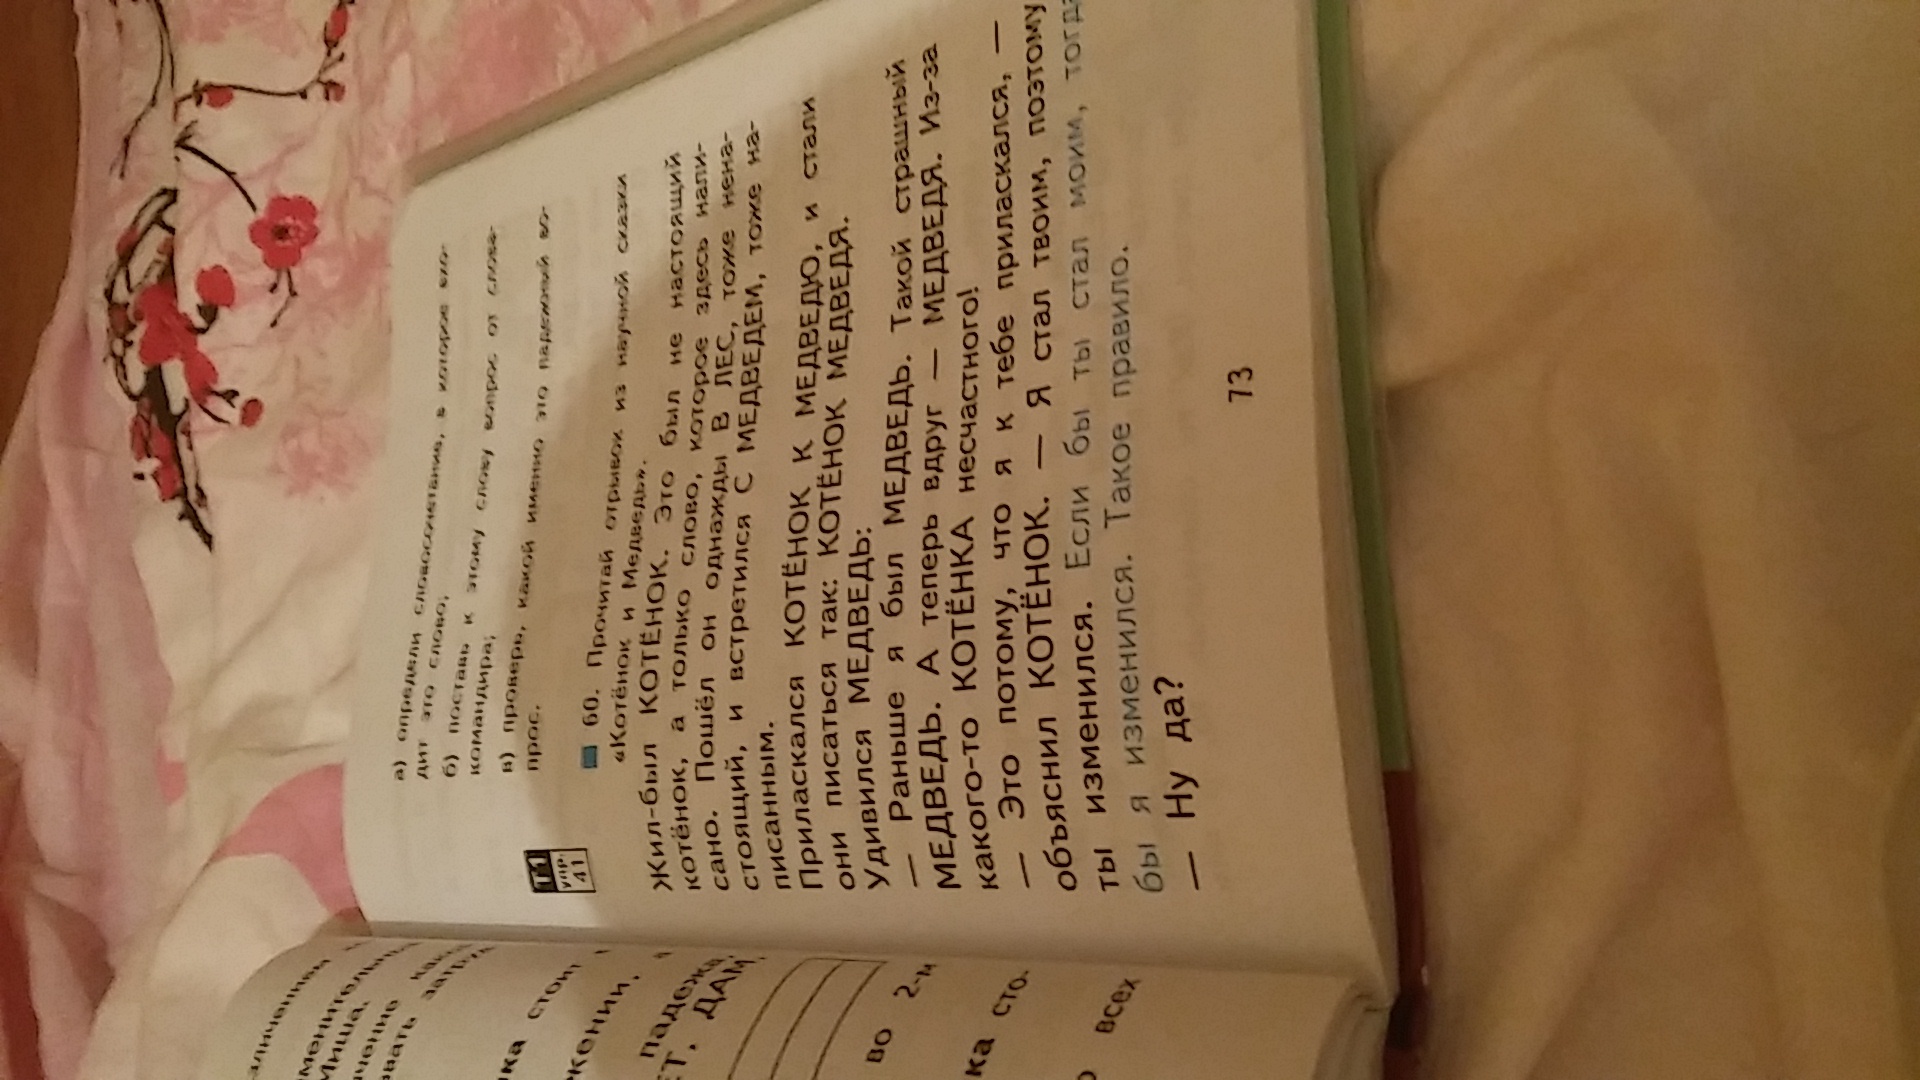 зличении
менительны
Миша.
чение как
вать затруд
ка стоит
жении.
падежа
ЕТ, ДАМ,
во 2-м
ка сто-
всех
а) определи словосочетание, в которое вхо-
дит это слово;
б) поставь к этому слову вопрос от слова-
командира;
в) проверь, какой именно это падежный во-
прос.
Т1
упр.
41
60. Прочитай отрывок из научной сказки
«Котёнок и Медведь».
Жил-был КОТЁНОК. Это был не настоящий
котёнок, а только слово, которое здесь напи-
сано. Пошёл он однажды В ЛЕС, тоже нена-
стоящий, и встретился С МЕДВЕДЕМ, тоже на-
писанным.
Приласкался КОТЁНОК К МЕДВЕДЮ, и стали
они писаться так: КОТЁНОК МЕДВЕДЯ.
Удивился МЕДВЕДЬ:
— Раньше я был МЕДВЕДЬ. Такой страшный
МЕДВЕДЬ. А теперь вдруг — МЕДВЕДЯ. Из-за
какого-то КОТЁНКА несчастного!
— Это потому, что я к тебе приласкался, —
объяснил КОТЁНОК. — Я стал твоим, поэтому
ты изменился. Если бы ты стал моим, тогда
бы я изменился. Такое правило.
— Ну да?
73